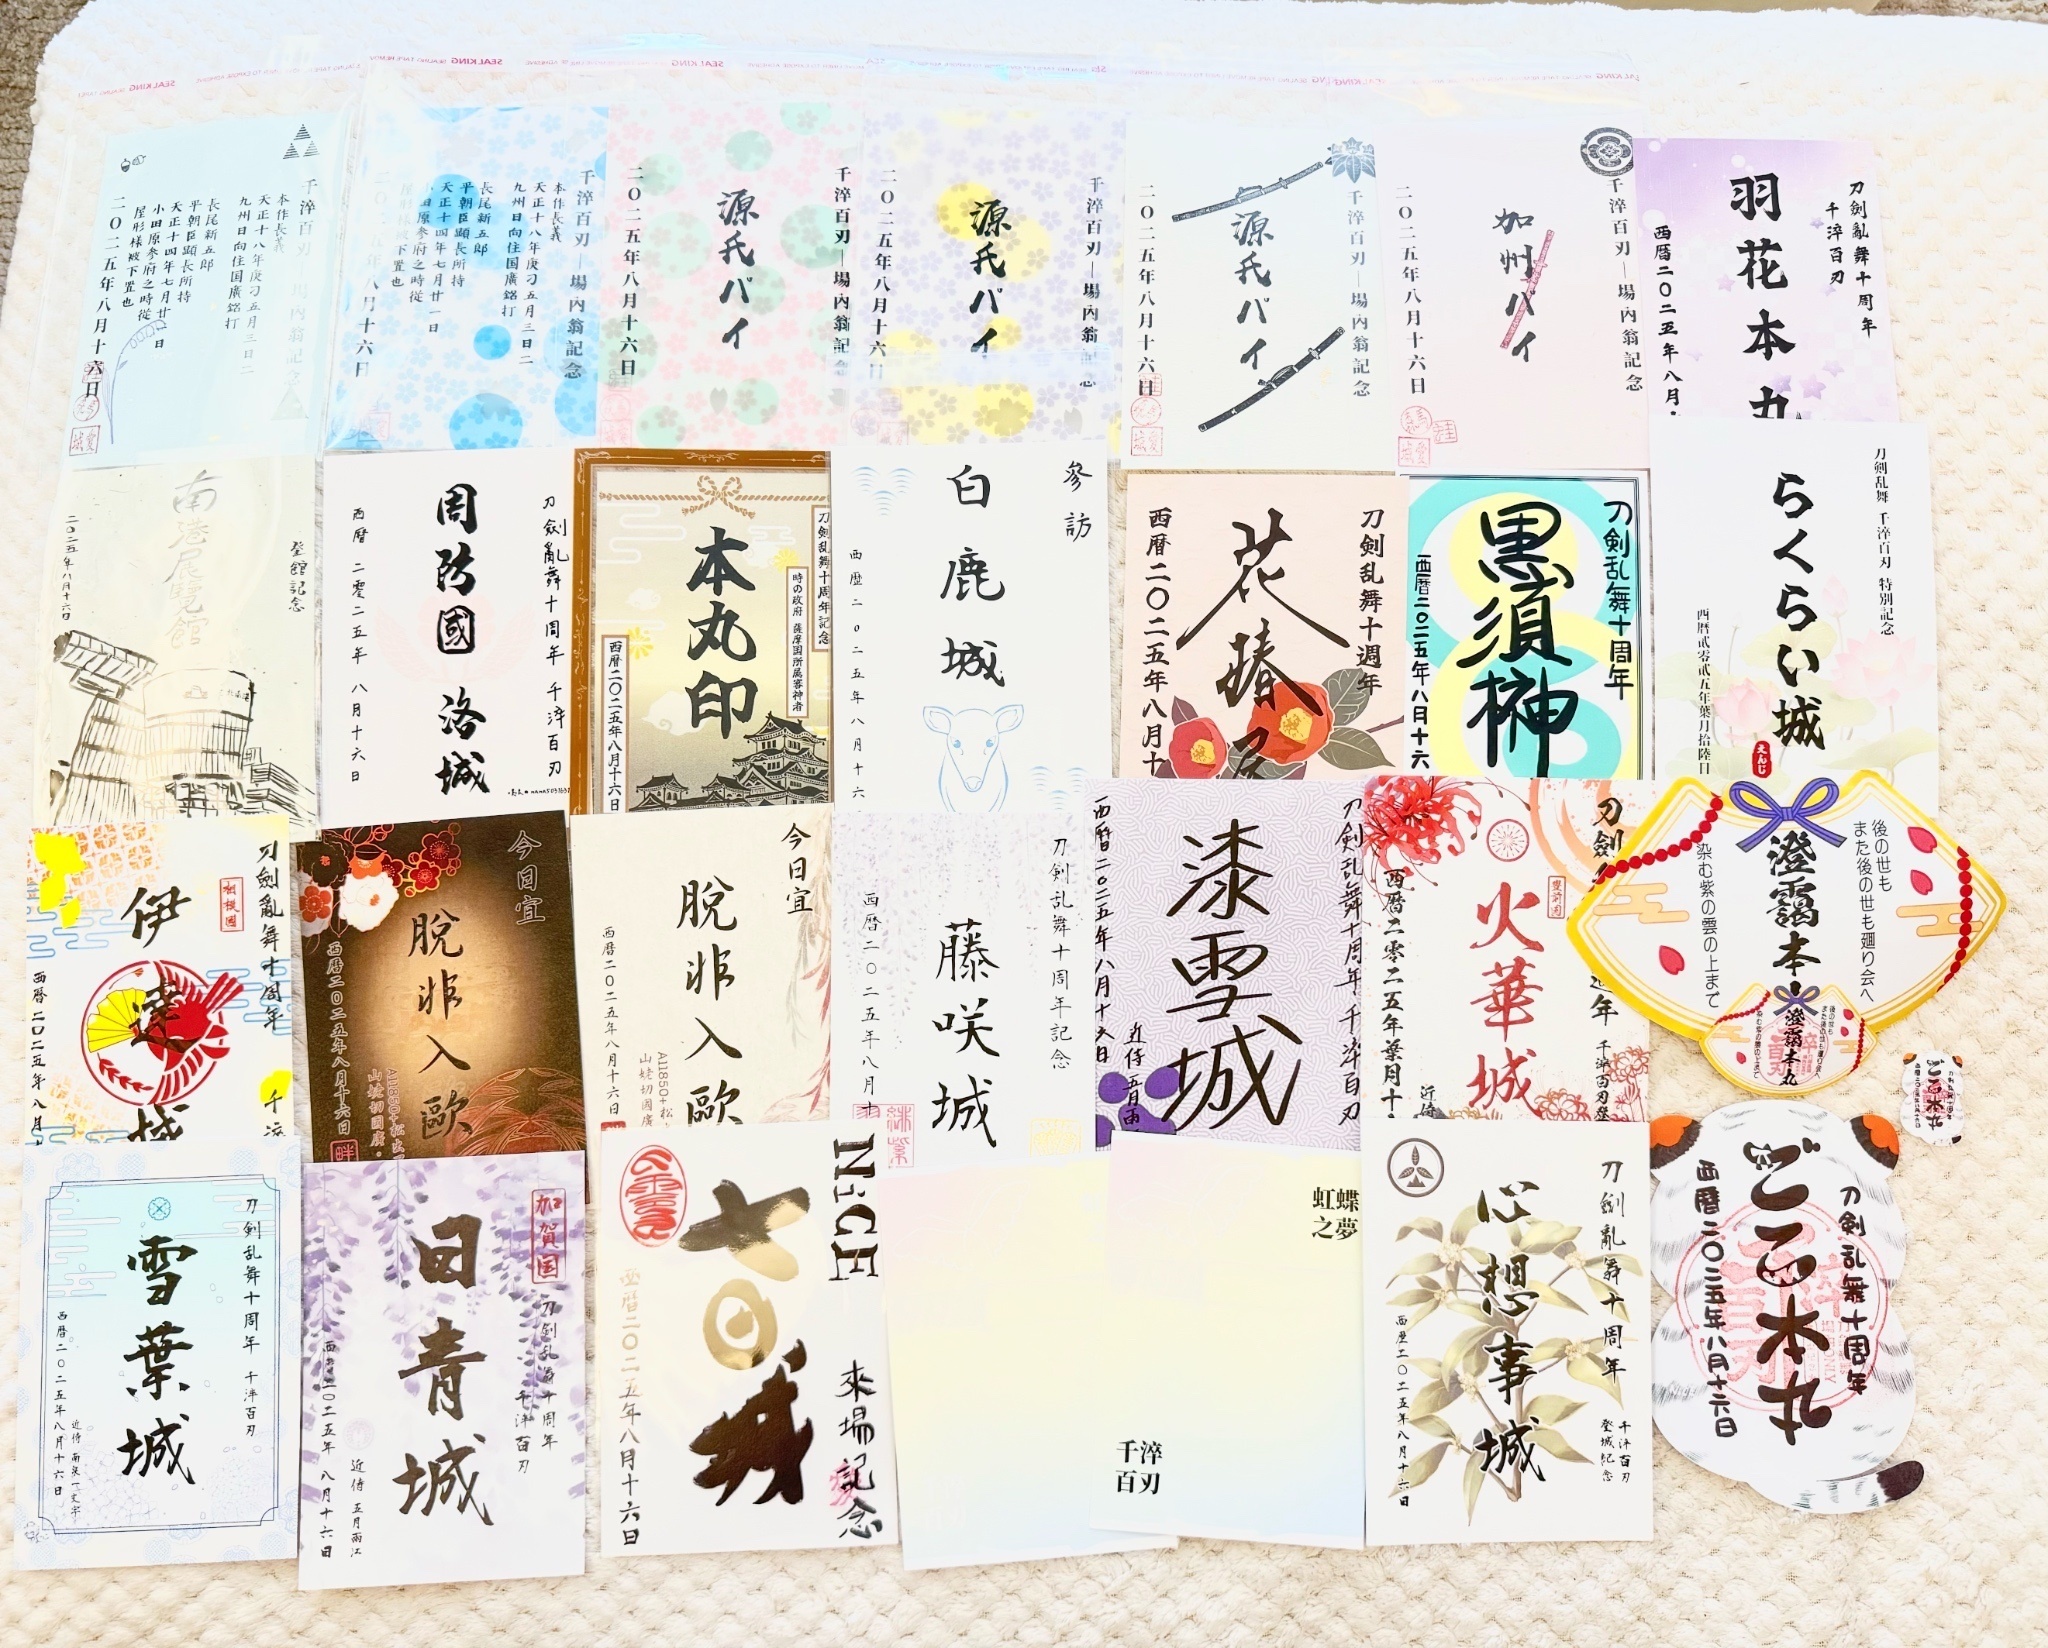 SEAL KING
SEAL KING
SEAL KING
SEAL KING
千淬百刃
場內翁記念
本作長義
天正十八年庚刁五月三日二
九州日向住国廣銘打
長尾新五郎
平朝臣顕長所持
天正十四年七月廿一日
小田原參府之時從
屋形様被下置也
二〇二五年八月十六日
千淬百刃—場內翁記念
本作長義
天正十八年庚刁五月三日二
九州日向住国廣銘打
長尾新五郎
平朝臣顕長所持
天正十四年七月廿一日
小田原參府之時從
屋形様被下置也
二〇二五年八月十六日
千淬百刃—場內翁記念
源氏パイ
二〇二五年八月十六日
千淬百刃—場內翁記念
源氏パイ
二〇二五年八月十六日
千淬百刃—場內翁記念
源氏パイ
二〇二五年八月十六日
千淬百刃—場內翁記念
加州パイ
二〇二五年八月十六日
刀劍亂舞十周年
千淬百刃
羽花本丸
西曆二〇二五年八月
登館記念
南港展覽館
二〇二五年八月十六日
刀劍亂舞十周年 千淬百刃
周防國 洛城
西曆 二零二五年 八月十六日
刀剣乱舞十周年記念
時の政府 薩摩国所属審神者
本丸印
西暦二〇二五年八月十六日
參訪
白鹿城
西曆二〇二五年八月十六
刀剣乱舞十週年
花椿
西暦二〇二五年八月十
刀剣乱舞十周年
黒須榊
西暦二〇二五年八月十六
刀剣乱舞 千淬百刃 特別記念
らくらい城
えんじ
西曆貳零貳五年葉月拾陸日
刀劍亂舞十周年 千淬
相模国
伊達城
西曆二〇二五年八月
今日宜
脫非入歐
西暦二〇二五年八月十六日
A11850+松
山姥切國廣
畔
今日宜
脫非入歐
西暦二〇二五年八月十六日
A11850+松
山姥切國廣
刀剣乱舞十周年記念
藤咲城
西暦二〇二五年八月十
刀剣乱舞十周年 千淬百刃
漆雪城
西暦二〇二五年八月十六日
近侍 五月雨
刀劍
週年 千淬百刃登
豐前國
火華城
西曆二零二五年葉月十
近侍
後の世も
また後の世も廻り会へ
澄靄本丸
染む紫の雲の上まで
後の世も
また後の世も廻り会へ
澄靄本丸
染む紫の雲の上まで
刀剣乱舞十周年
ごこ本丸
西暦二〇二五年八月十六日
刀剣乱舞十周年 千淬百刃
雪葉城
西暦二〇二五年八月十六日
近侍 南泉一文字
加賀国
刀剣乱舞十周年
千淬百刃
日青城
西暦二〇二五年 八月十六日
近侍 五月雨江
NiGE
來場記念
七日城
西暦二〇二五年八月十六日
虹蝶
之夢
千淬
百刃
刀劍亂舞十周年
千淬百刃
登城記念
心想事城
西歷二〇二五年八月十六日
刀剣乱舞十周年
ごこ本丸
西暦二〇二五年八月十六日